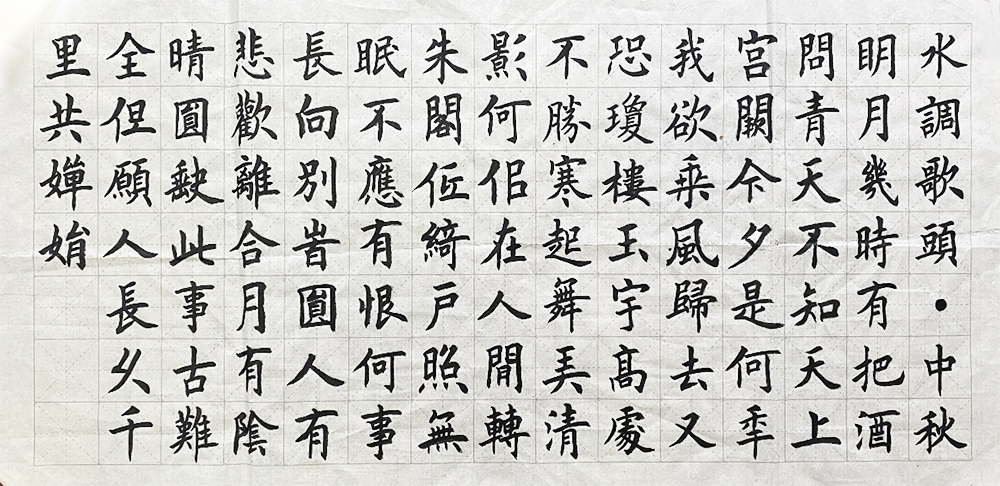 水調歌頭·中秋
明月幾時有把酒
問青天不知天上
宮闕今夕是何秊
我欲乘風歸去又
恐瓊樓玉宇髙處
不勝寒起舞弄清
影何佀在人間轉
朱閣低綺戶照無
眠不應有恨何事
長向別旹圓人有
悲歡離合月有陰
晴圓缺此事古難
全但願人長久千
里共嬋娟